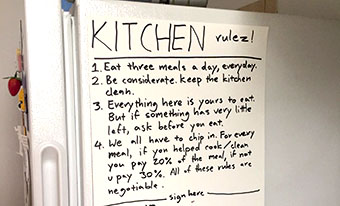 KITCHEN rulez!
1. Eat three meals a day, everyday.
2. Be considerate. Keep the kitchen
clean.
3. Everything here is yours to eat.
But if something has very little
left, ask before you eat.
4. We all have to chip in. For every
meal, if you helped cook/clean
you pay 20% of the meal, if not
u pay 30%. All of these rules are
negotiable.
sign here